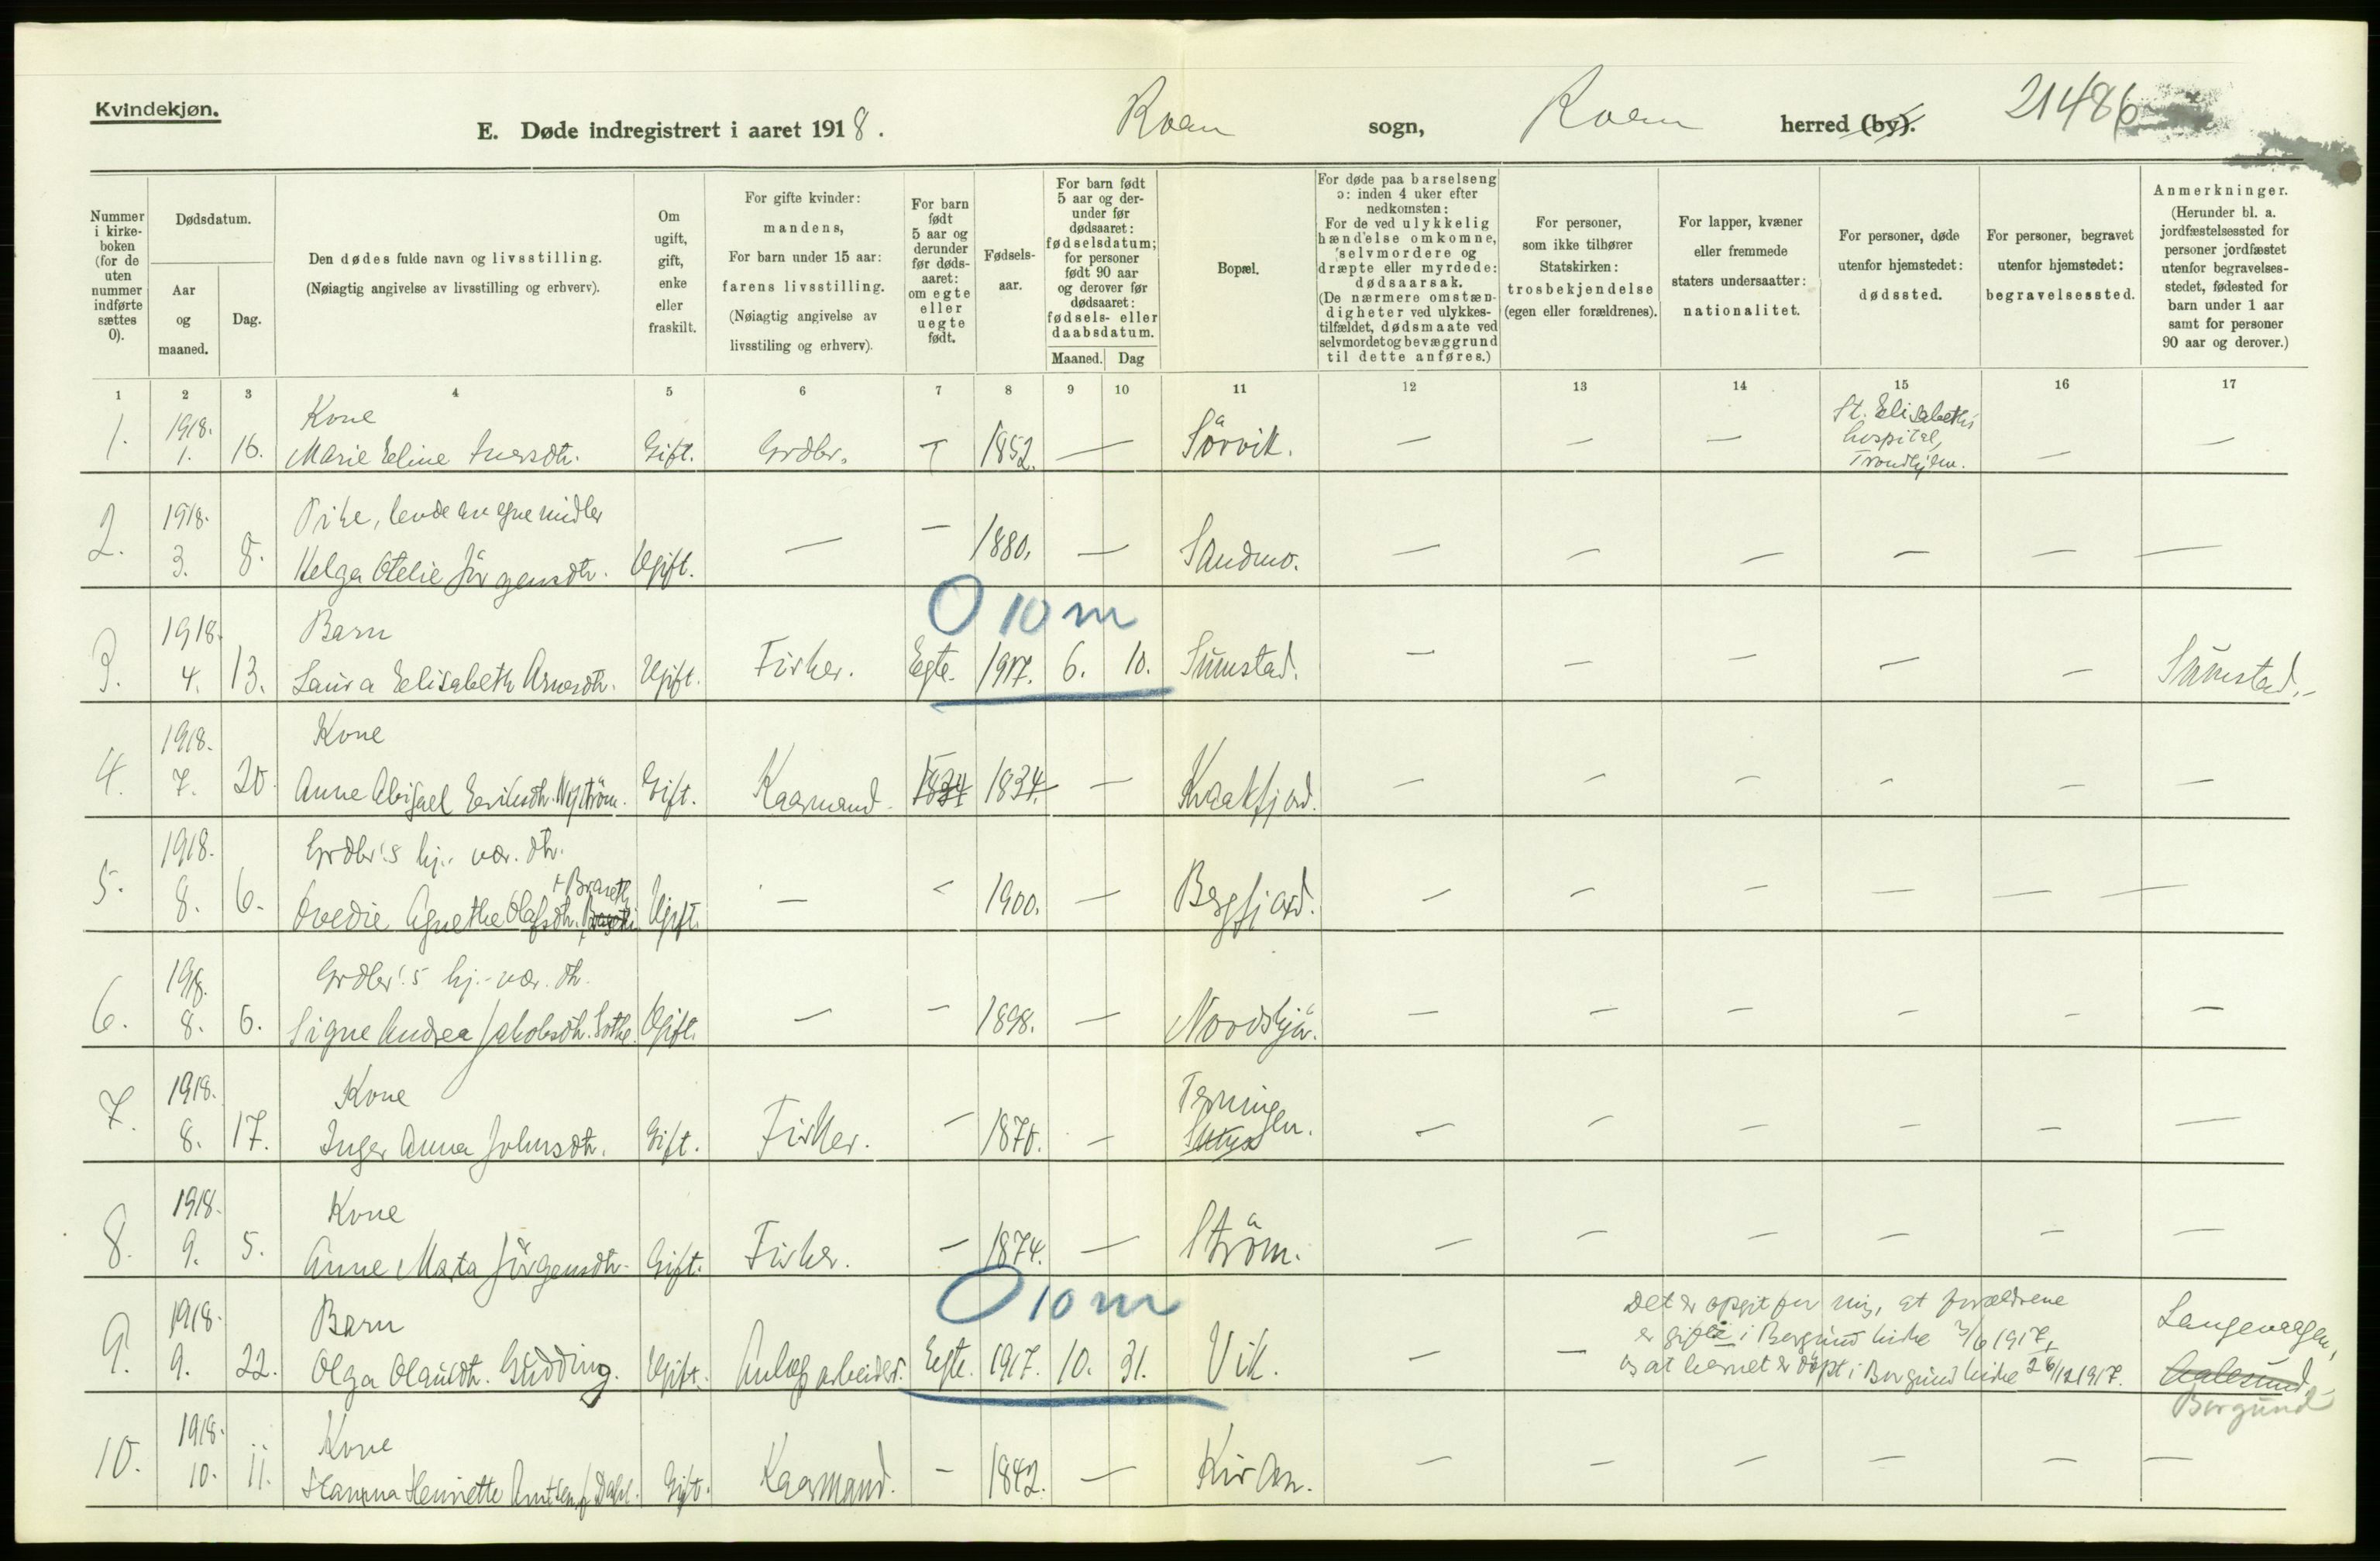 Kvindekjøn.
E. Døde indregistrert i aaret 1918. Roan sogn, Roan herred (by). 21486
Nummer i kirke-boken (for de uten nummer indførte sættes 0).
Dødsdatum.
Aar og maaned.
Dag.
Den dødes fulde navn og livsstilling.
(Nøiagtig angivelse av livsstilling og erhverv).
Om ugift, gift, enke eller fraskilt.
For gifte kvinder: mandens,
For barn under 15 aar: farens livsstilling.
(Nøiagtig angivelse av livsstiling og erhverv).
For barn født 5 aar og derunder før døds-aaret: om egte eller uegte født.
Fødsels-aar.
For barn født 5 aar og der-under før dødsaaret: fødselsdatum; for personer født 90 aar og derover før dødsaaret: fødsels- eller daabsdatum.
Maaned. Dag
Bopæl.
For døde paa barselseng ɔ: inden 4 uker efter nedkomsten:
For de ved ulykkelig hændelse omkomne, selvmordere og dræpte eller myrdede: dødsaarsak.
(De nærmere omstæn-digheter ved ulykkes-tilfældet, dødsmaate ved selvmordet og bevæggrund til dette anføres.)
For personer, som ikke tilhører Statskirken: trosbekjendelse (egen eller forældrenes).
For lapper, kvæner eller fremmede staters undersaatter: nationalitet.
For personer, døde utenfor hjemstedet: dødssted.
For personer, begravet utenfor hjemstedet: begravelsessted.
Anmerkninger.
(Herunder bl. a. jordfæstelsessted for personer jordfæstet utenfor begravelses-stedet, fødested for barn under 1 aar samt for personer 90 aar og derover.)
1 2 3 4 5 6 7 8 9 10 11 12 13 14 15 16 17
1. 1918. 1. 16. Kone
Marie Eline Iversdtr. Gift. Grdbr. – 1852. – Sörvik. – – – St. Elisabeths hospital, Trondhjem. – –
2. 1918. 3. 8. Pike, levde av egne midler
Helga Otelie Jörgensdtr. Ugift. – – 1880. – Sandmo. – – – – – –
O 10 m
3. 1918. 4. 13. Barn
Laura Elisabeth Arnesdtr. Ugift. Fisker. Egte. 1917. 6. 10. Sumstad. – – – – – Sumstad.-
4. 1918. 7. 20. Kone
Anne Abigael Eriksdtr. Nyström. Gift. Kaarmand. 1834 1834. – Kraakfjord. – – – – – –
5. 1918. 8. 6. Grdbr's hj.-vær. dtr.
Ovedie Agnethe Olafsdtr. Ugift. – – 1900. – Bergfjord. – – – – – –
6. 1918. 8. 6. Grdbr's hj.-vær. dtr.
Signe Andrea Jakobsdtr. Ugift. – – 1898. – Nordskjör. – – – – – –
7. 1918. 8. 17. Kone
Inger Anna Johnsdtr. Gift. Fisker. – 1870. – Terningen. – – – – – –
8. 1918. 9. 5. Kone
Anne Marta Jörgensdtr. Gift. Fisker. – 1874. – Ström. – – – – – –
O 10 m
9. 1918. 9. 22. Barn
Olga Olausdtr. Gudding. Ugift. Anlægsarbeider. Egte. 1917. 10. 31. Vik. – –
Det er opgit for mig, at forældrene
er gifte i Borgund kirke 3/6 1917,
og at barnet er döpt i Borgund kirke 26/12 1917.
Langevaagen,
Aalesund.-
Borgund
10. 1918. 10. 11. Kone
Hanna Henriette Arntsen f. Dahl. Gift. Kaarmand. – 1842. – Kiran. – – – – – –